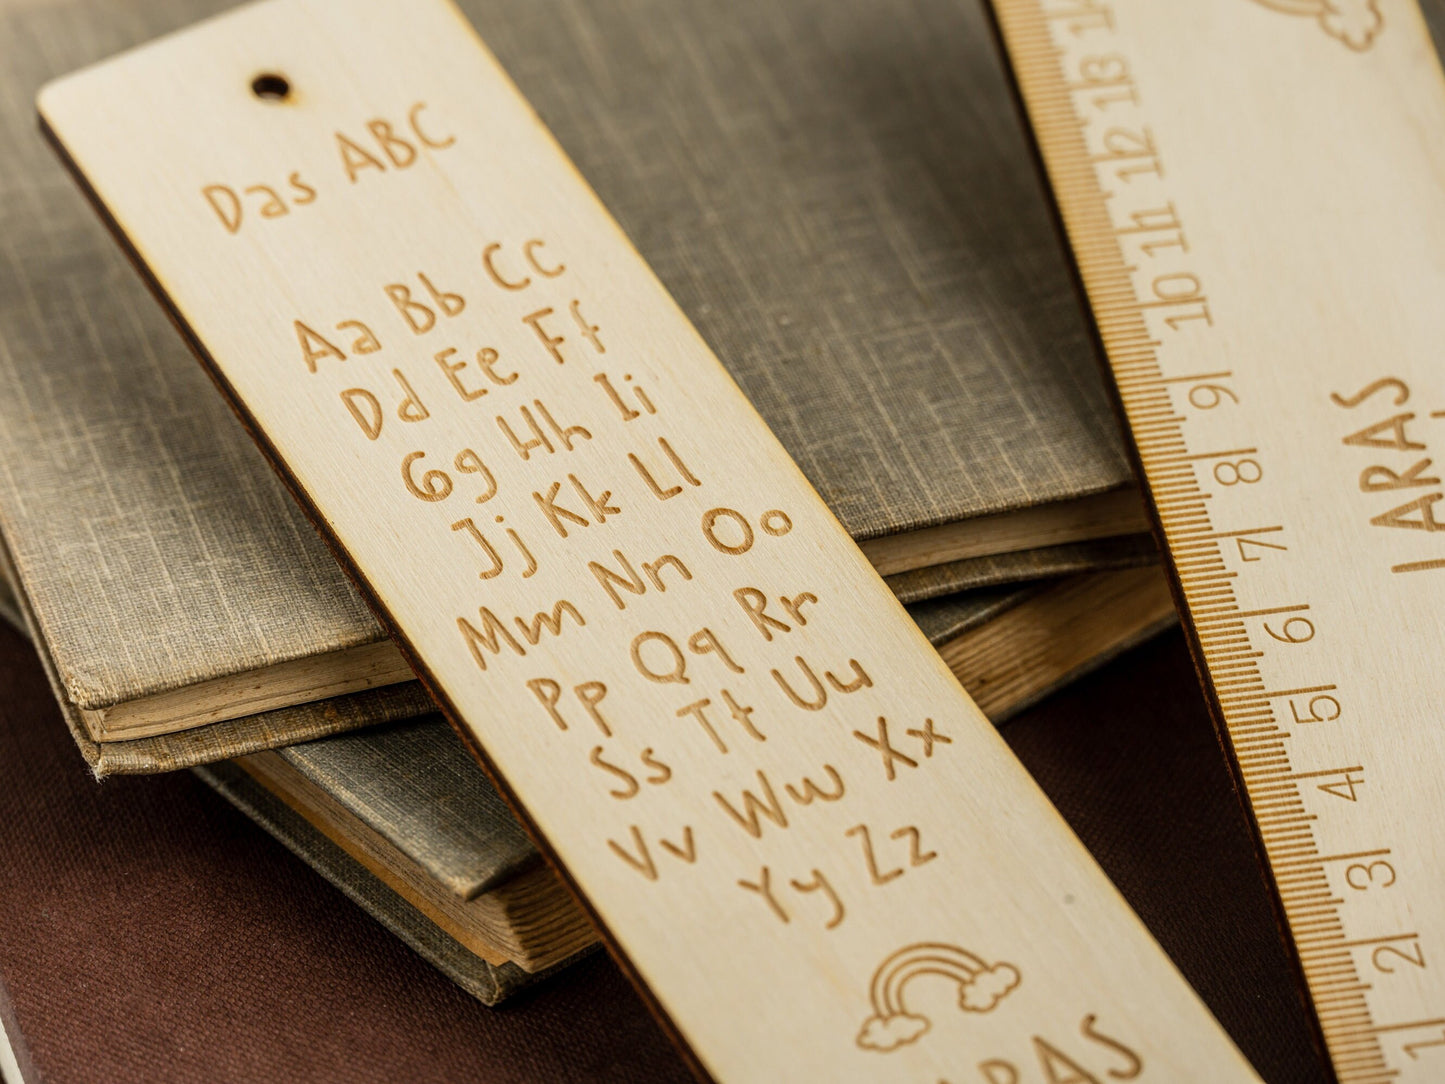 Das ABC
Aa Bb Cc
Dd Ee Ff
Gg Hh Ii
Jj Kk Ll
Mm Nn Oo
Pp Qq Rr
Ss Tt Uu
Vv Ww Xx
Yy Zz
13
12
11
10
9
8
7
6
5
4
3
2
1